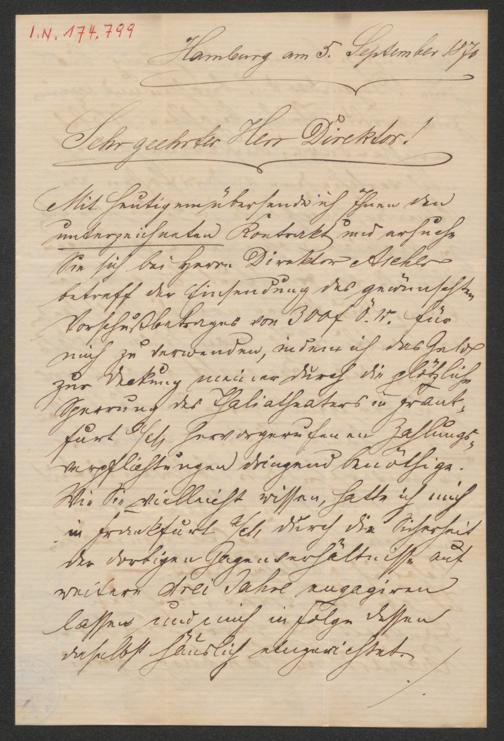 I.N. 174.799
Hamburg am 5. September 1870
Sehr geehrter Herr Direktor!
Mit Heutigem übersende ich Ihnen den
unterzeichneten Kontrakt und ersuche
Sie sich bei Herrn Direktor Ascher
betreff der Einsendung des gewünschten
Vorschußbetrages von 300 f Ö.W. für
mich zu verwenden, indem ich das Geld
zur Deckung meiner durch die plötzliche
Sperrung des Thaliatheaters in Frank-
furt a/M hervorgerufenen Zahlungs-
verpflichtungen dringend benöthige.
Wie Sie vielleicht wissen, hatte ich mich
in Frankfurt a/M durch die Sicherheit
der dortigen Gagenverhältnisse auf
weitere drei Jahre engagiren
lassen und mich in Folge dessen
daselbst häuslich eingerichtet.